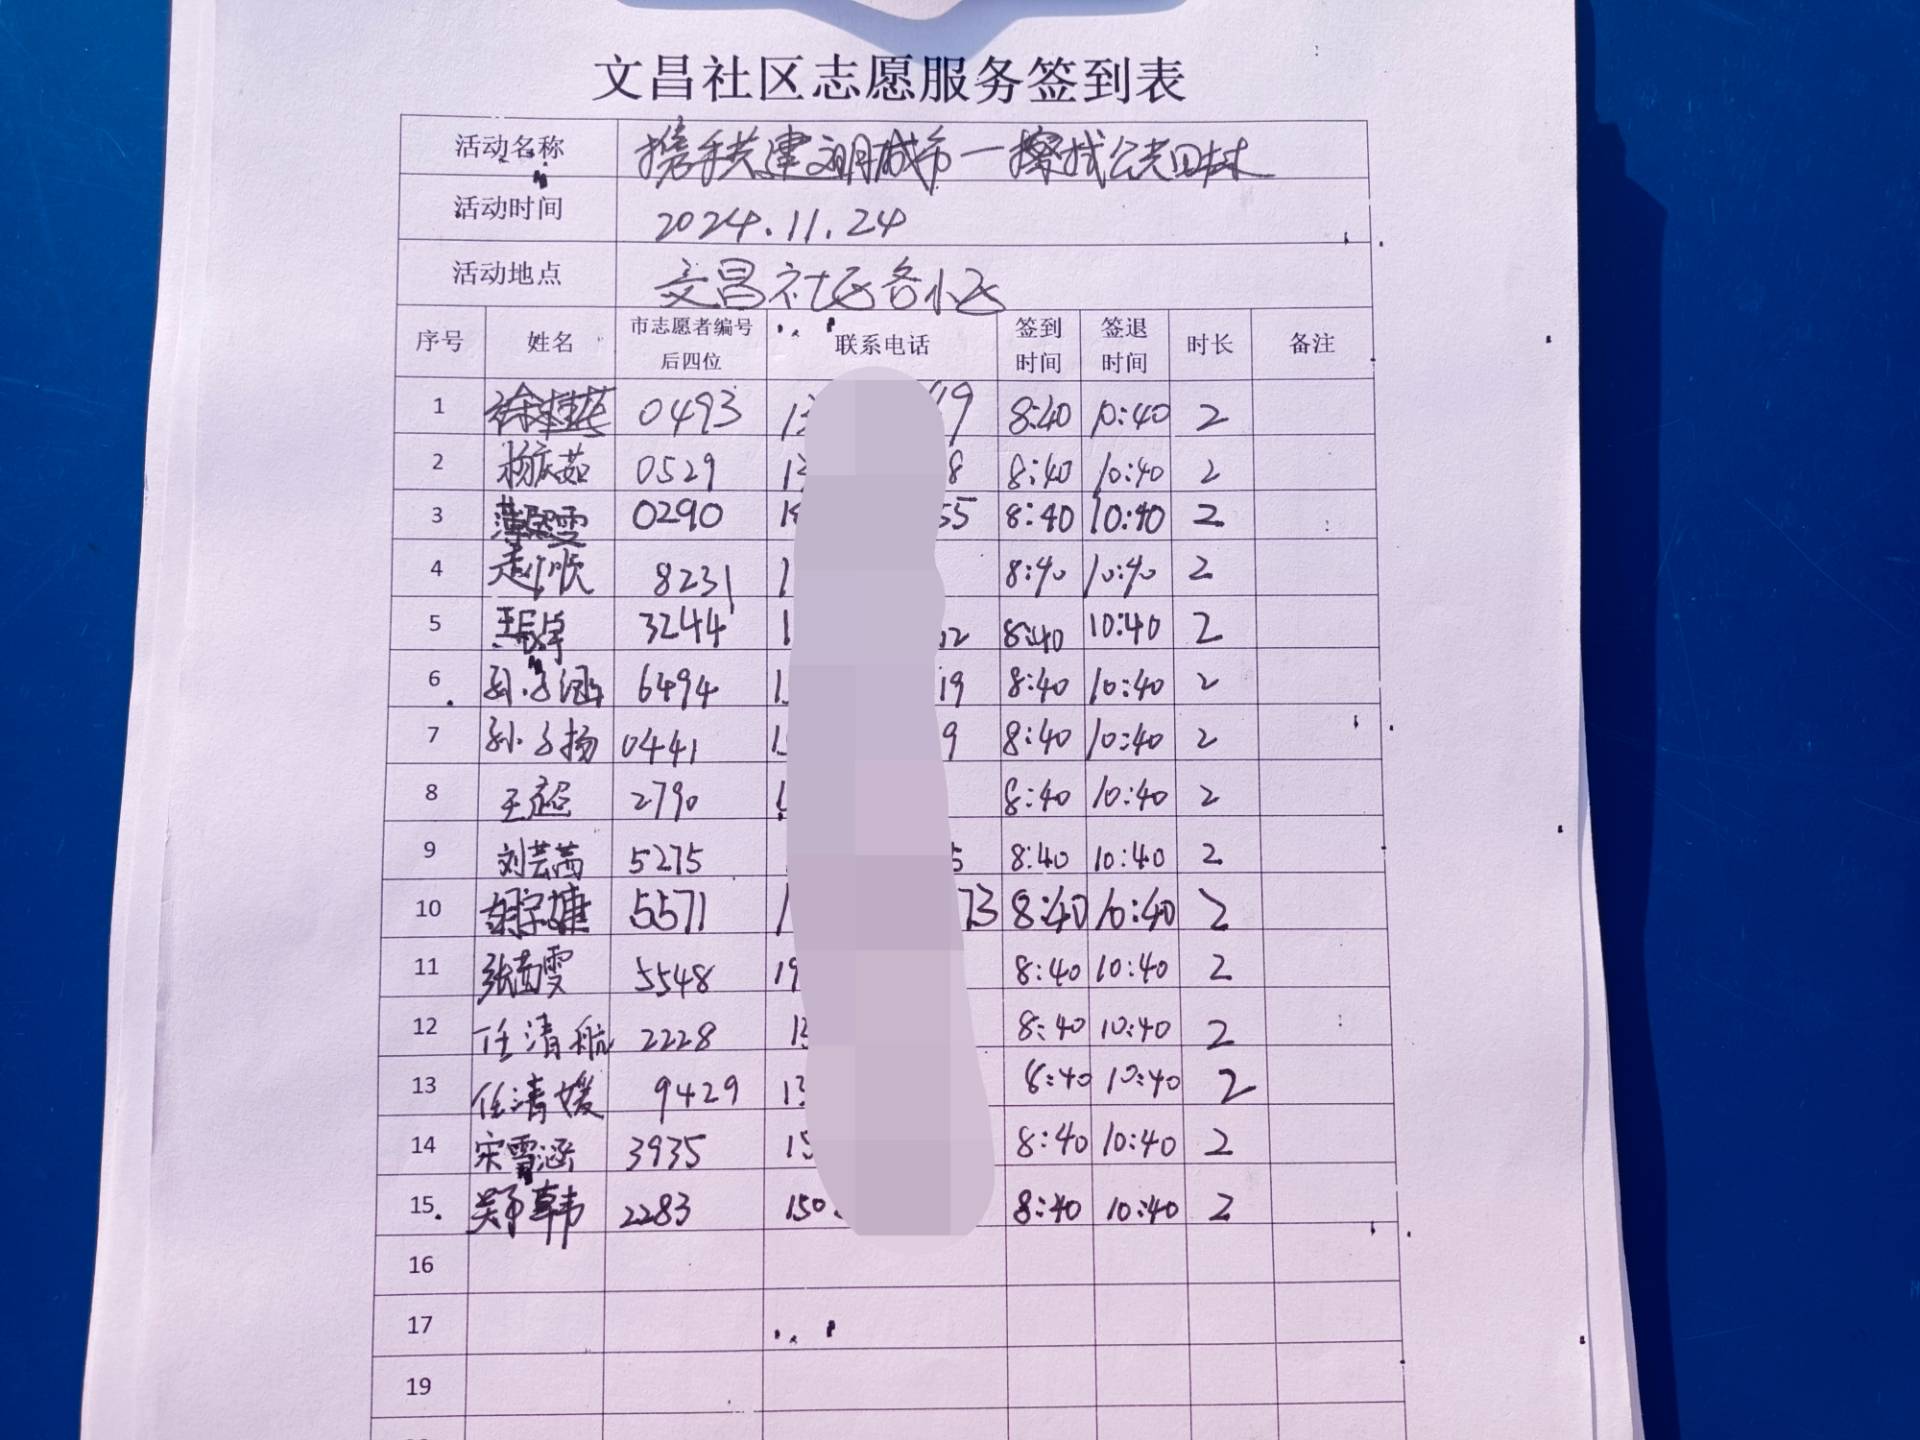 文昌社区志愿服务签到表
活动名称 携手共建文明城市一擦拭公共
活动时间 2024.11.24
活动地点 文昌社区各小区
序号 姓名 市志愿者编号后四位 联系电话 签到时间 签退时间 时长 备注
1 徐桂花 0493 13 19 8:40 10:40 2
2 杨庆茹 0529 8 8:40 10:40 2
3 薄熙雯 0290 55 8:40 10:40 2
4 赵顺 8231 1 8:40 10:40 2
5 3244 1 12 8:40 10:40 2
6 孙子涵 6494 1 19 8:40 10:40 2
7 孙子扬 0441 1 9 8:40 10:40 2
8 王超 2790 8:40 10:40 2
9 刘芸茜 5275 5 8:40 10:40 2
10 胡宇婕 5571 1 73 8:40 10:40 2
11 张茜雯 5548 19 8:40 10:40 2
12 任清航 2228 13 8:40 10:40 2
13 任清媛 9429 13 8:40 10:40 2
14 宋雪涵 3935 15 8:40 10:40 2
15 郑韩 2283 150 8:40 10:40 2
16
17
19